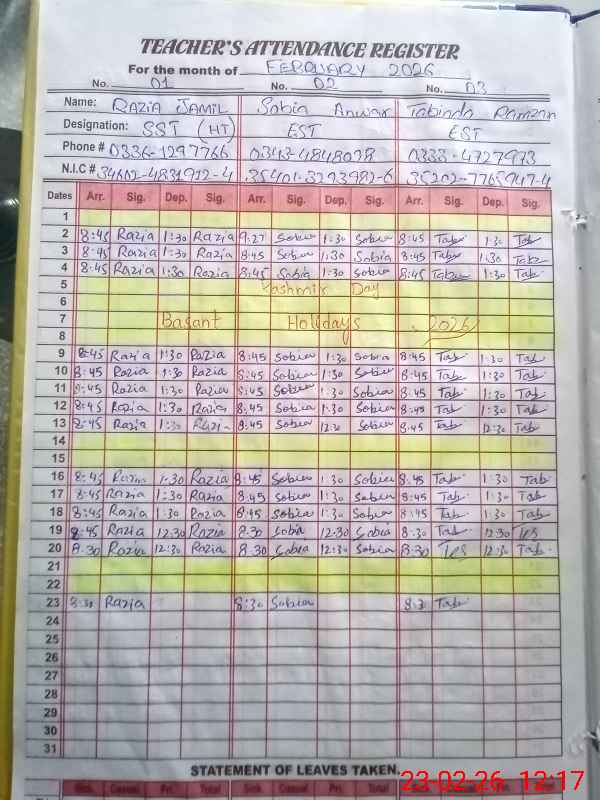 TEACHER'S ATTENDANCE REGISTER
For the month of FEBRUARY 2026
No. 01 No. 02 No. 03
Name: RAZIA JAMIL Sobia Anwar Tabinda Ramzan
Designation: SST (HT) EST EST
Phone # 0336-1297766 0343-4848078 0333-4727973
N.I.C # 34602-4831912-4 35401-3293982-6 35202-7765947-4
Dates Arr. Sig. Dep. Sig. Arr. Sig. Dep. Sig. Arr. Sig. Dep. Sig.
1
2 8:45 Razia 1:30 Razia 9:27 Sobia 1:30 Sobia 8:45 Tab 1:30 Tab
3 8:45 Razia 1:30 Razia 8:45 Sobia 1:30 Sobia 8:45 Tab 1:30 Tab
4 8:45 Razia 1:30 Razia 8:45 Sobia 1:30 Sobia 8:45 Tab 1:30 Tab
5 Kashmir Day
6
7 Basant Holidays 2026
8
9 8:45 Razia 1:30 Razia 8:45 Sobia 1:30 Sobia 8:45 Tab 1:30 Tab
10 8:45 Razia 1:30 Razia 8:45 Sobia 1:30 Sobia 8:45 Tab 1:30 Tab
11 8:45 Razia 1:30 Razia 8:45 Sobia 1:30 Sobia 8:45 Tab 1:30 Tab
12 8:45 Razia 1:30 Razia 8:45 Sobia 1:30 Sobia 8:45 Tab 1:30 Tab
13 8:45 Razia Razia 8:45 Sobia 12:30 Sobia 8:45 Tab 12:30 Tab
14
15
16 8:45 Razia 1:30 Razia 8:45 Sobia 1:30 Sobia 8:45 Tab 1:30 Tab
17 8:45 Razia 1:30 Razia 8:45 Sobia 1:30 Sobia 8:45 Tab 1:30 Tab
18 8:45 Razia 1:30 Razia 8:45 Sobia 1:30 Sobia 8:45 Tab 1:30 Tab
19 8:45 Razia 12:30 Razia 8:30 Sobia 12:30 Sobia 8:30 Tab 12:30
20 8:30 Razia 12:30 Razia 8:30 Sobia 12:30 Sobia 8:30 12:30 Tab
21
22
23 8:30 Razia 8:30 Sobia 8:3 Tab
24
25
26
27
28
29
30
31
STATEMENT OF LEAVES TAKEN.
23-02-26 12:17